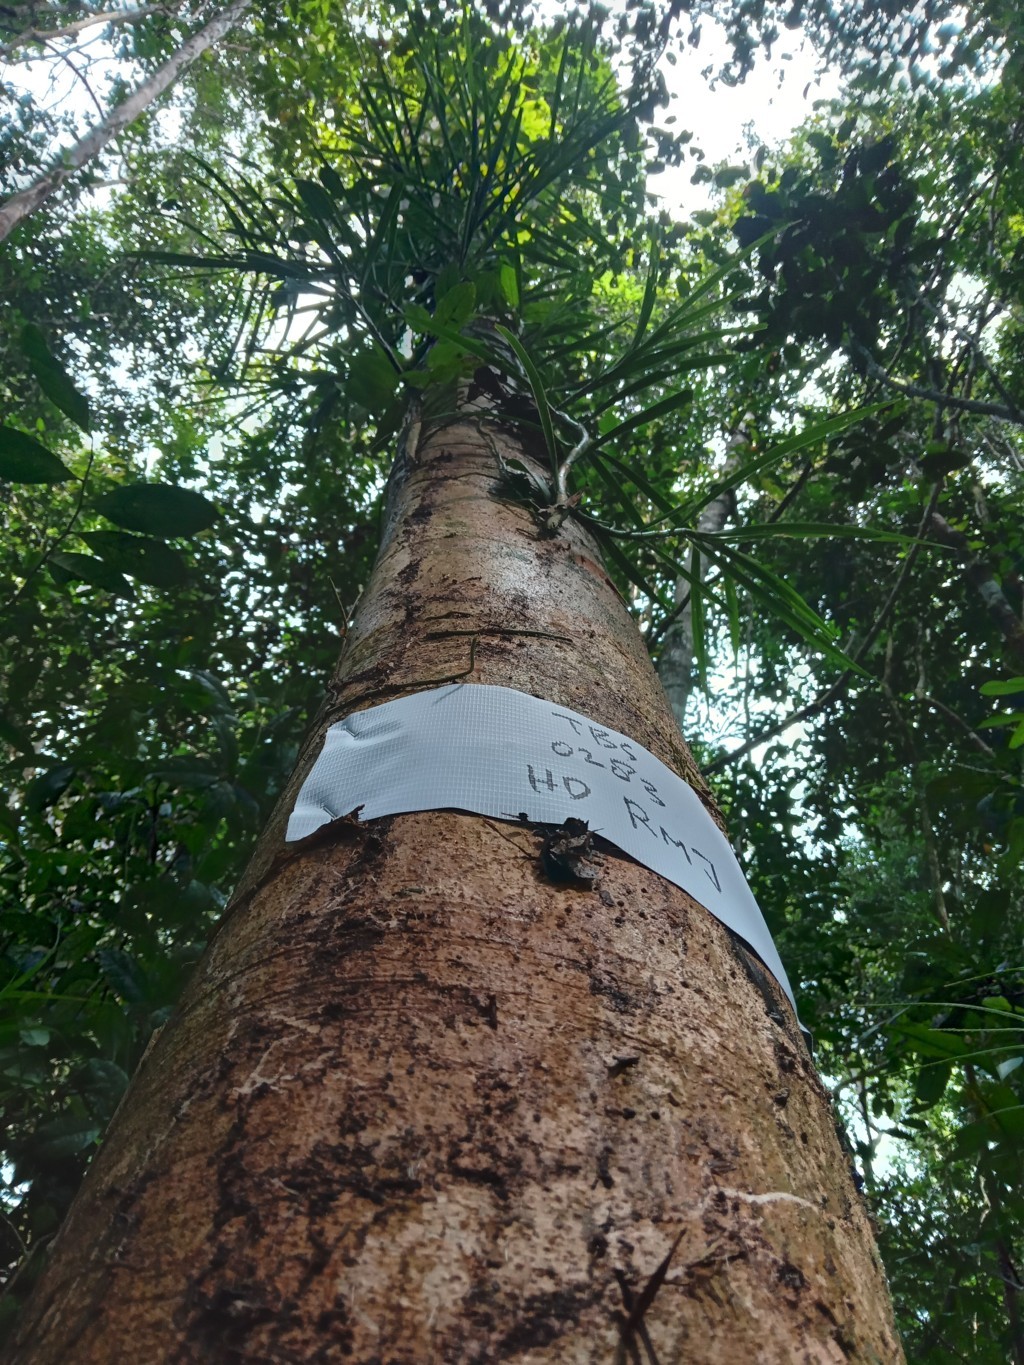 TBS
0283
HD RMJ